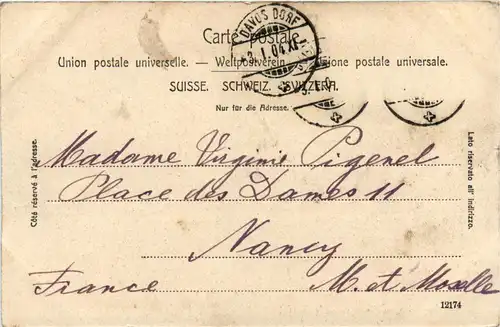 Carte postale.
DAVOS DORF
3.I.04.XI
Union postale universelle. — Weltpostverein. — Unione postale universale.
SUISSE. SCHWEIZ. SVIZZERA.
Nur für die Adresse.
Côté réservé à l'adresse.
Lato riservato all' indirizzo.
Madame Virginie Pigenel
Place des Dames 11
Nancy
France M. et Moselle
12174